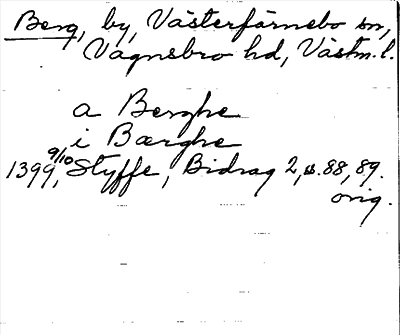 Berg, by, Västerfärnebo sn,
Vagnsbro hd, Västm. l.
a Berghe
i Bærghe
1399 9/10, Styffe, Bidrag 2, s. 88, 89.
orig.